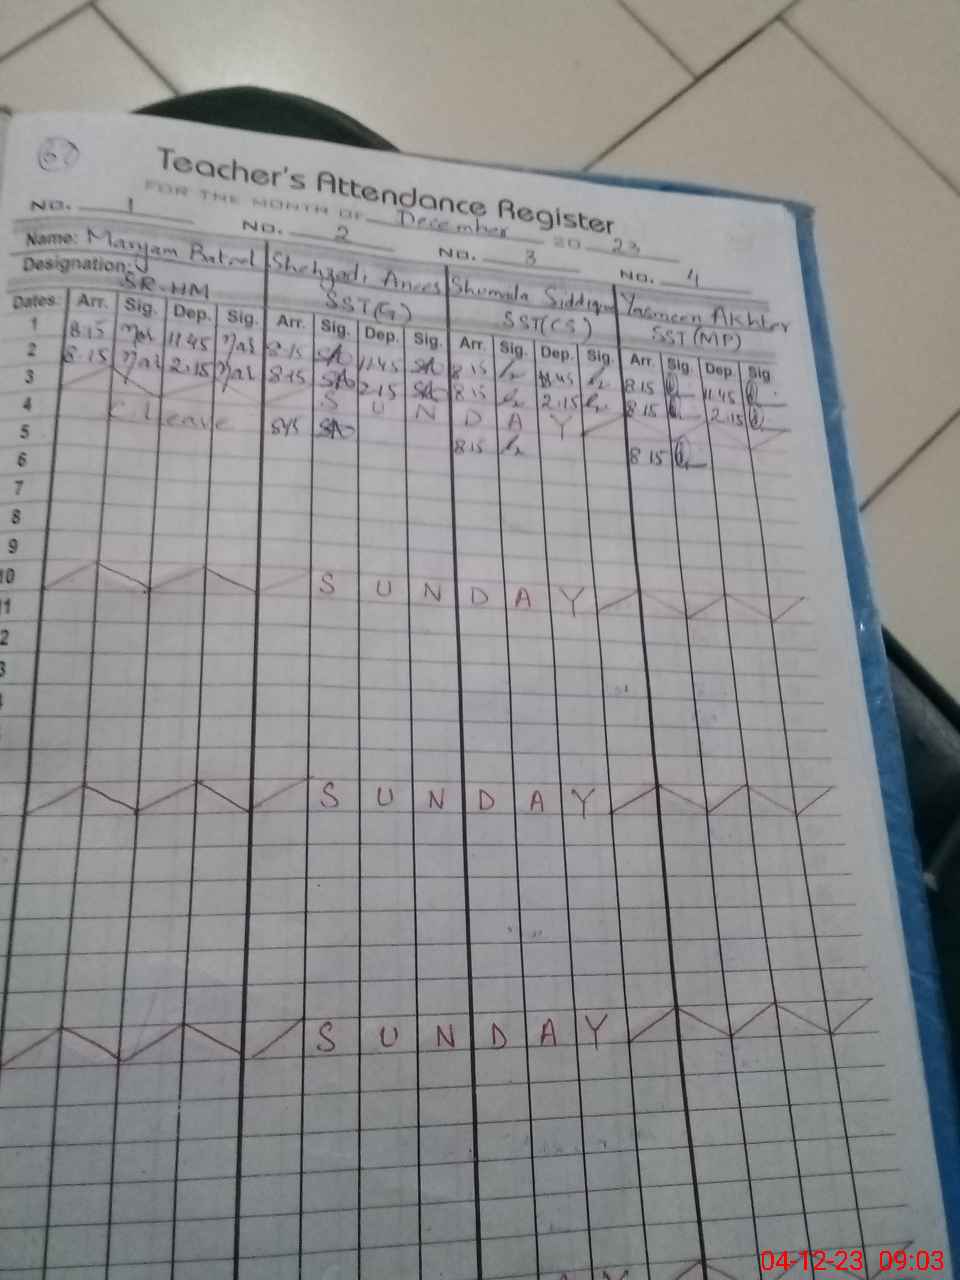 67
Teacher's Attendance Register
FOR THE MONTH OF December 20 23
NO. 1 NO. 2 NO. 3 NO. 4
Name: Maryam Batool Shehzadi Anees Shumaila Siddiqui Yasmeen Akhter
Designation: SR-HM SST(G) SST(CS) SST(MP)
Dates: Arr. Sig. Dep. Sig. Arr. Sig. Dep. Sig. Arr. Sig. Dep. Sig. Arr. Sig. Dep. Sig
1 8.15 Mar 11.45 Mar 8.15 SA 11.45 SA 8.15 11.45 8.15 11.45
2 8.15 Mar 2.15 Mar 8.15 SA 2.15 SA 8.15 2.15 8.15 2.15
3 S U N D A Y
4 C Leave SA 8.15 8.15
5
6
7
8
9
10 S U N D A Y
11
S U N D A Y
S U N D A Y
04-12-23 09:03